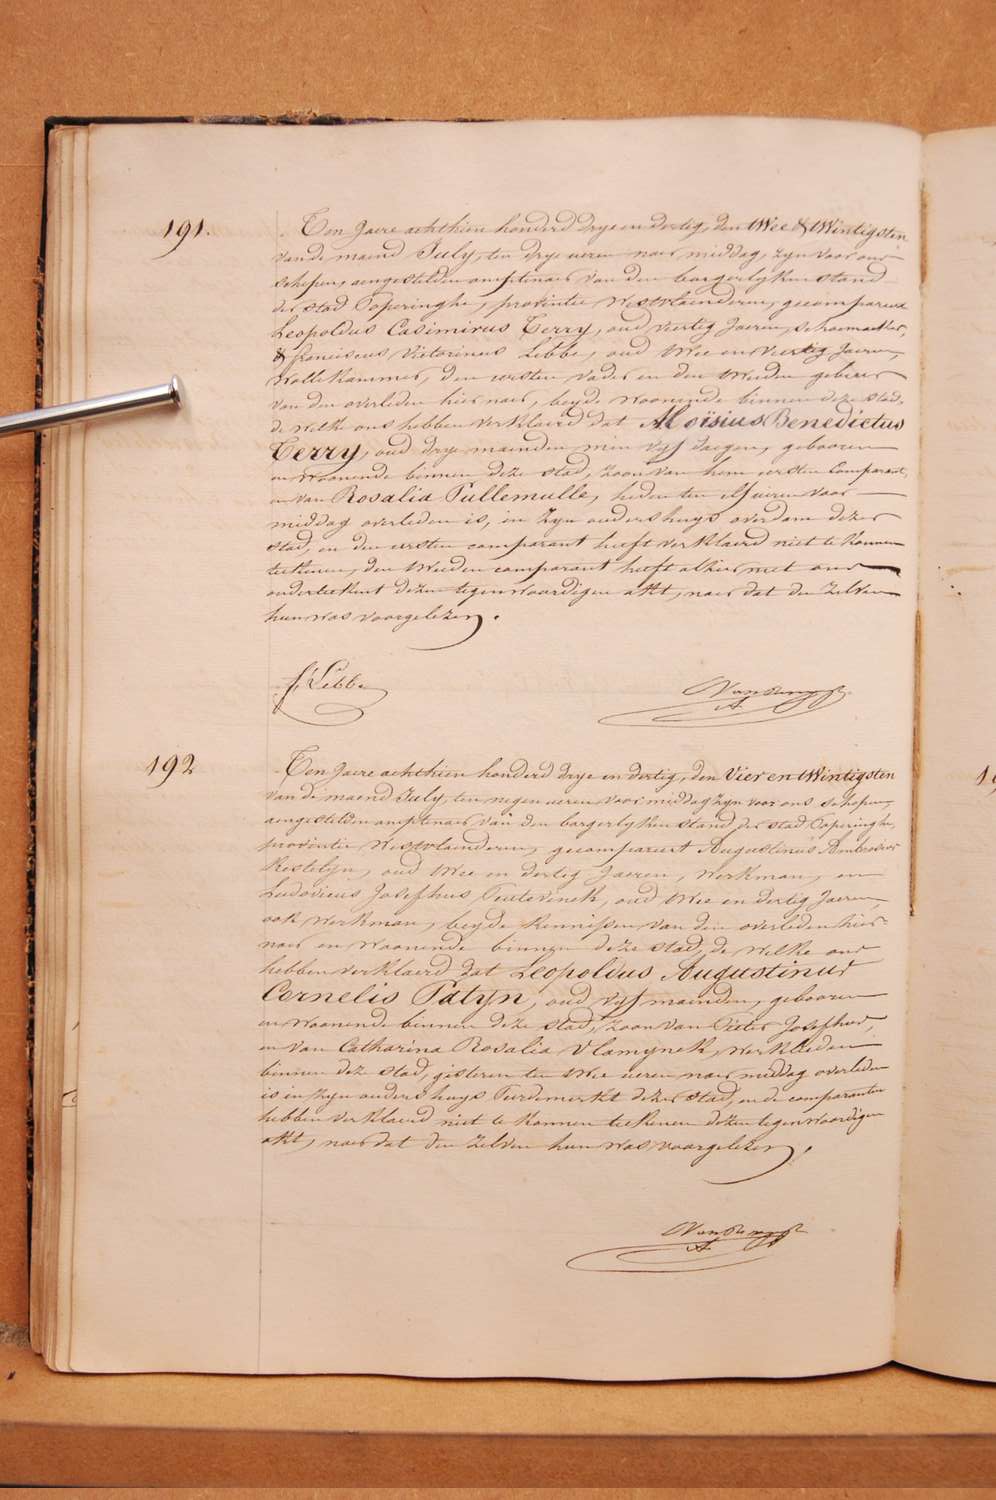 191.
Ten Jaere achthien honderd drye en dertig, den twee & twintigsten
van de maend July, ten drye ueren naer middag, zyn voor ons
schepen, aengestelden amptenaer van den borgerlyken stand
der stad Poperinghe, provintie Westvlaenderen, gecompareerd
Leopoldus Casimirus Terry, oud veertig Jaeren, schoenmaeker,
& franciscus Victorinus Lebbe, oud twee en veertig Jaeren,
wollekammer, den eersten vader en den tweeden gebuer
van den overleden hier naer, beyde woonende binnen deze stad,
de welke ons hebben verklaerd dat Aloïsius Benedictus
Terry, oud drye maenden min vyf daegen, gebooren
en woonende binnen deze stad, zoon van hem eersten Comparant,
en van Rosalia Pullemulle, heden ten elf ueren voor
middag overleden is, in zyn ouders huys overdam dezer
stad, en den eersten comparant heeft verklaerd niet te konnen
teekenen, den tweeden comparant heeft alhier met ons
onderteekent dezen tegenwoordigen akt, naer dat den zelven
hun was voorgelezen.
f. Lebbe
192
Ten Jaere achthien honderd drye en dertig, den Vier en twintigsten
van de maend July, ten negen ueren voor middag zyn voor ons schepen,
aengestelden amptenaer van den borgerlyken stand der stad Poperinghe,
provintie Westvlaenderen, gecompareert Augustinus Ambrosius
Kestelyn, oud twee en dertig Jaeren, werkman, en
Ludovicus Josephus Teutevinck, oud twee en dertig Jaeren,
ook werkman, beyde kennissen van den overleden hier-
naer en woonende binnen deze stad, de welke ons
hebben verklaerd dat Leopoldus Augustinus
Cornelis Patyn, oud vyf maenden, gebooren
en woonende binnen deze stad, zoon van Pieter Josephus,
en van Catharina Rosalia Vlamynck, werklieden
binnen deze stad, gisteren ten twee ueren naer middag overleden
is in zyn ouders huys Peerdemerkt dezer stad, en de comparanten
hebben verklaerd niet te konnen teekenen dezen tegenwoordigen
akt, naer dat den zelven hun was voorgelezen.